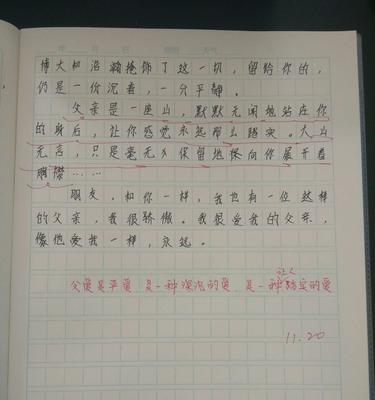 年 月 日 星期 天气
博大和浩瀚掩饰了这一切，留给你的，
仍是一份沉着，一分平静。
父亲是一座山，默默无闻地站在你
的身后，让你感觉永远那么踏实。大山
无言，只是毫无保留地候向你展开着
胸襟……
朋友，和你一样，我也有一位这样
的父亲，我很骄傲。我很爱我的父亲，
像他爱我一样，永远。
父爱是平爱 是一种深沉的爱 是一种让人踏实的爱
11.20